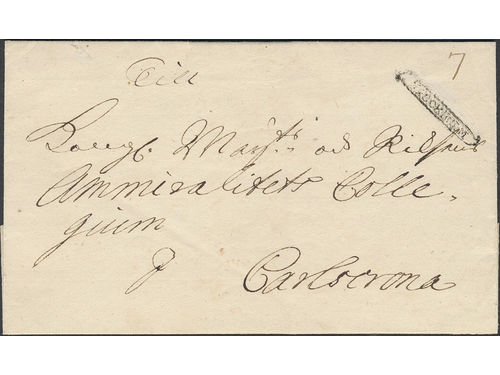 7
STOCKHOLM
Till
Kongl. Maÿts och Riksens
Ammiralitets Colle,
gium
Carlscrona